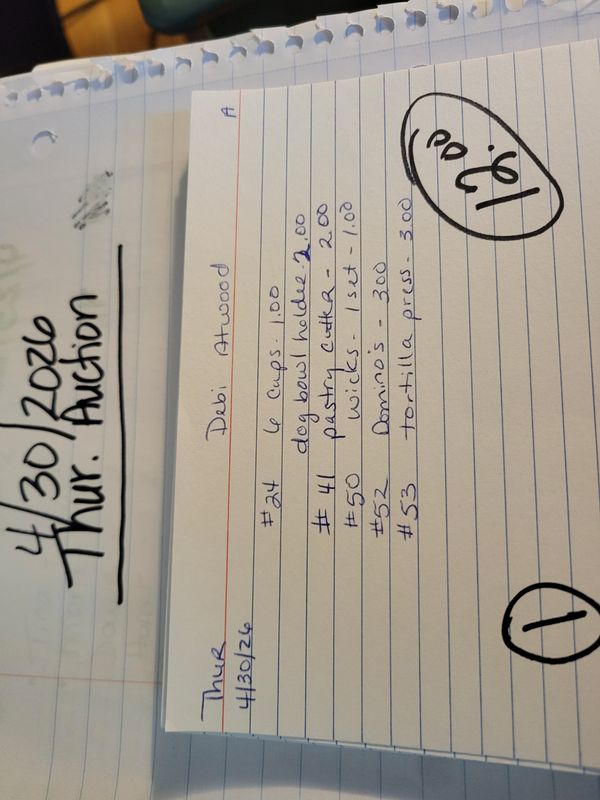 4/30/2026
Thur. Auction
A
Thur Debi Atwood
4/30/26
#24 6 cups - 1.00
dog bowl holder - 2.00
#41 pastry cutter - 2.00
#50 wicks - 1 set - 1.00
#52 Domino's - 3.00
#53 tortilla press - 3.00
12.00
1